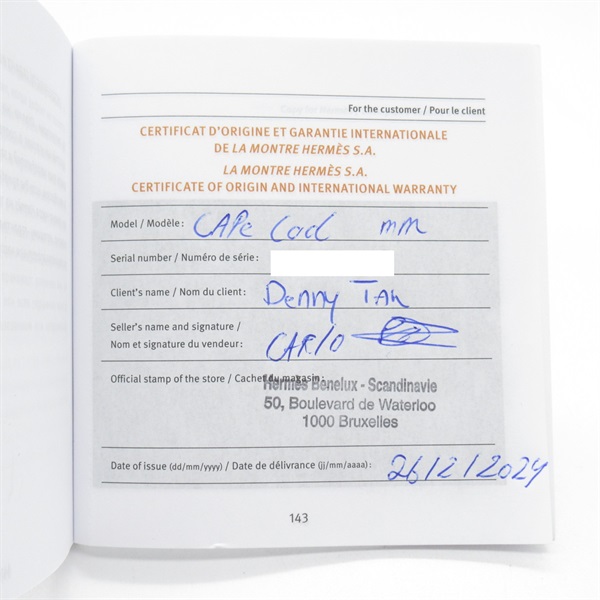 For the customer / Pour le client
CERTIFICAT D'ORIGINE ET GARANTIE INTERNATIONALE
DE LA MONTRE HERMÈS S.A.
LA MONTRE HERMÈS S.A.
CERTIFICATE OF ORIGIN AND INTERNATIONAL WARRANTY
Model / Modèle: CAPE Cod MM
Serial number / Numéro de série:
Client's name / Nom du client: Denny Tan
Seller's name and signature /
Nom et signature du vendeur: CARlO
Official stamp of the store / Cachet du magasin:
Hermès Benelux - Scandinavie
50, Boulevard de Waterloo
1000 Bruxelles
Date of issue (dd/mm/yyyy) / Date de délivrance (jj/mm/aaaa): 26/2/2024
143